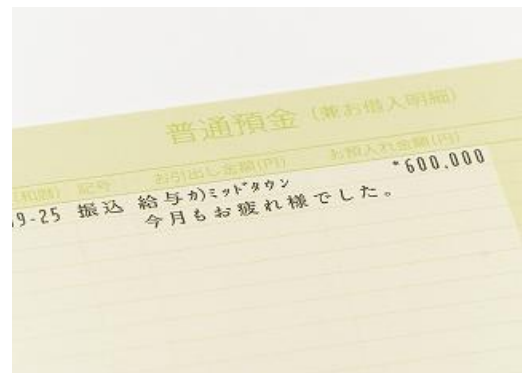 普通預金(兼お借入明細)
(和暦) 記号 お引出し金額(円) お預入れ金額(円)
9-25 振込 給与カ)ミッドタウン *600.000
今月もお疲れ様でした。